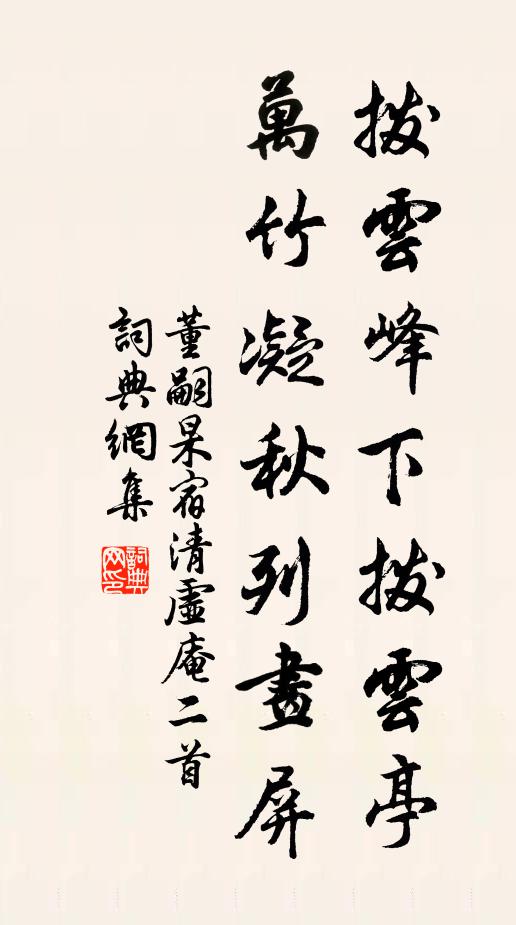 撥雲峰下撥雲亭
萬竹凝秋列畫屏
董嗣杲宿清虛庵二首
詞典網集
詞典网印